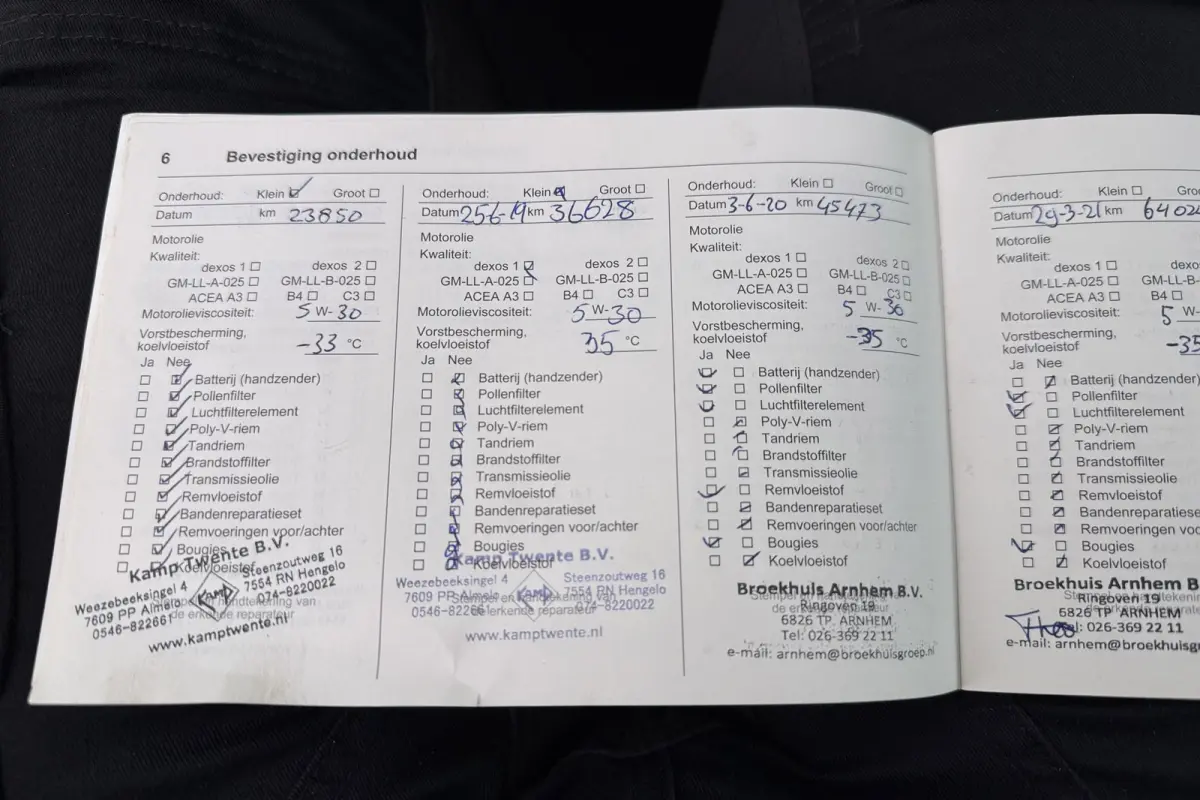 6 Bevestiging onderhoud
Onderhoud: Klein Groot
Datum km 23850
Motorolie
Kwaliteit:
dexos 1 dexos 2
GM-LL-A-025 GM-LL-B-025
ACEA A3 B4 C3
Motorolieviscositeit: 5 W-30
Vorstbescherming,
koelvloeistof -33 °C
Ja Nee
Batterij (handzender)
Pollenfilter
Luchtfilterelement
Poly-V-riem
Tandriem
Brandstoffilter
Transmissieolie
Remvloeistof
Bandenreparatieset
Remvoeringen voor/achter
Bougies
Koelvloeistof
Kamp Twente B.V.
Weezebeeksingel 4 Steenzoutweg 16
7609 PP Almelo KAMP 7554 RN Hengelo
0546-822661 074-8220022
handtekening van
de erkende reparateur
www.kamptwente.nl
Onderhoud: Klein Groot
Datum 25-6-19 km 36628
Motorolie
Kwaliteit:
dexos 1 dexos 2
GM-LL-A-025 GM-LL-B-025
ACEA A3 B4 C3
Motorolieviscositeit: 5 W-30
Vorstbescherming,
koelvloeistof 35 °C
Ja Nee
Batterij (handzender)
Pollenfilter
Luchtfilterelement
Poly-V-riem
Tandriem
Brandstoffilter
Transmissieolie
Remvloeistof
Bandenreparatieset
Remvoeringen voor/achter
Bougies
Koelvloeistof
Kamp Twente B.V.
Weezebeeksingel 4 Steenzoutweg 16
7609 PP Almelo KAMP 7554 RN Hengelo
Stempel en handtekening van
0546-822661 074-8220022
de erkende reparateur
www.kamptwente.nl
Onderhoud: Klein Groot
Datum 3-6-20 km 45473
Motorolie
Kwaliteit:
dexos 1 dexos 2
GM-LL-A-025 GM-LL-B-025
ACEA A3 B4 C3
Motorolieviscositeit: 5 W-30
Vorstbescherming,
koelvloeistof -35 °C
Ja Nee
Batterij (handzender)
Pollenfilter
Luchtfilterelement
Poly-V-riem
Tandriem
Brandstoffilter
Transmissieolie
Remvloeistof
Bandenreparatieset
Remvoeringen voor/achter
Bougies
Koelvloeistof
Broekhuis Arnhem B.V.
Ringoven 19
6826 TP. ARNHEM
Tel: 026-369 22 11
e-mail: arnhem@broekhuisgroep.nl
Onderhoud: Klein Gro
Datum 29-3-21 km 6402
Motorolie
Kwaliteit:
dexos 1 dexos
GM-LL-A-025 GM-LL-B
ACEA A3 B4
Motorolieviscositeit: 5
Vorstbescherming,
koelvloeistof -35
Ja Nee
Batterij (handzender)
Pollenfilter
Luchtfilterelement
Poly-V-riem
Tandriem
Brandstoffilter
Transmissieolie
Remvloeistof
Bandenreparatieset
Remvoeringen voo
Bougies
Koelvloeistof
Broekhuis Arnhem B
Ringoven 19
6826 TP. ARNHEM
Tel: 026-369 22 11
e-mail: arnhem@broekhuisg